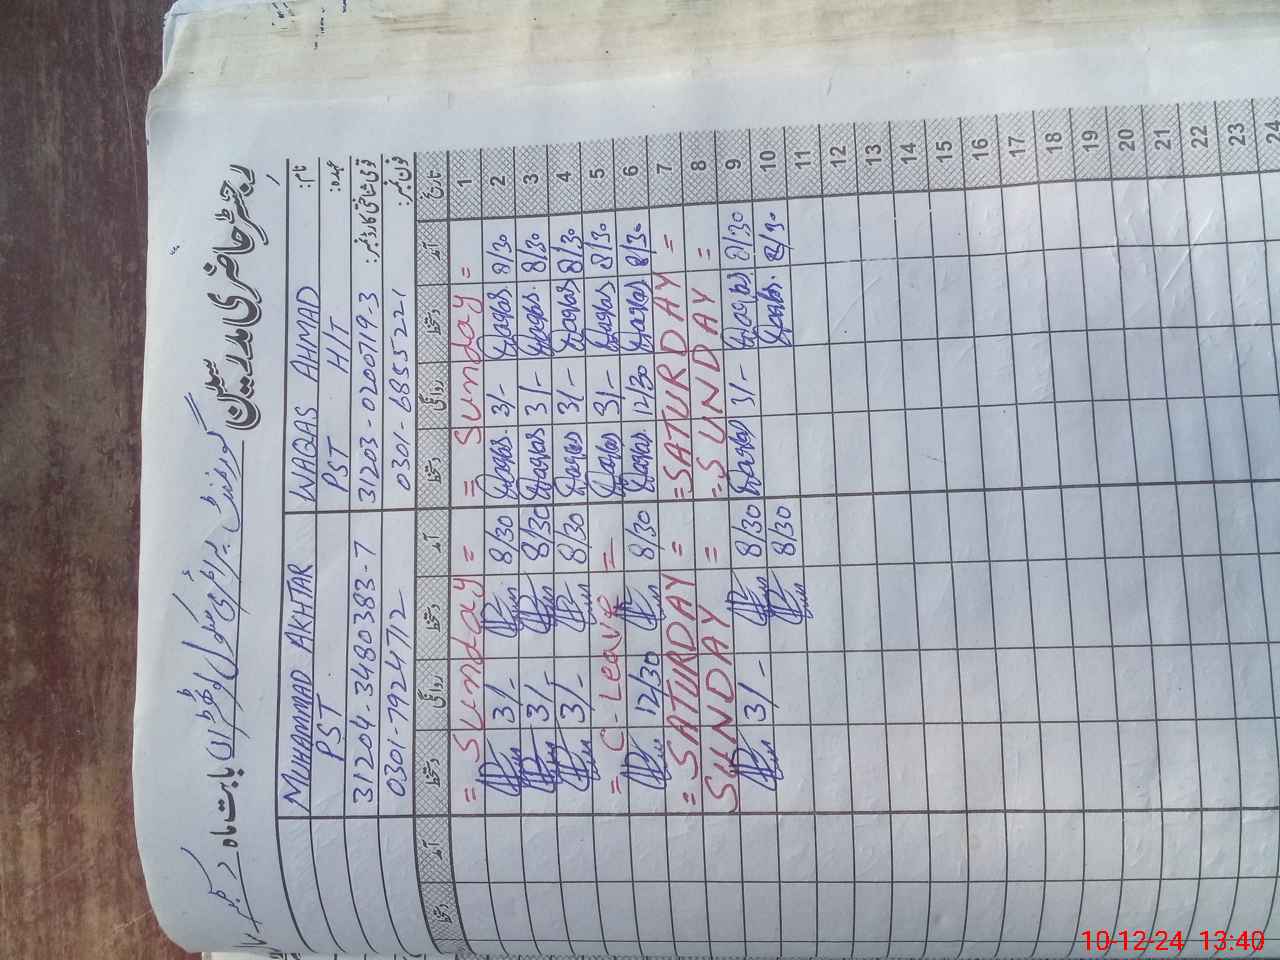 رجسٹر حاضری مدرسین گورنمنٹ پرائمری سکول بابت ماہ دسمبر
نام: WAQAS AHMAD MUHAMMAD AKHTAR
عہدہ: PST H/T PST
قومی شناختی کارڈ نمبر: 31203-0200719-3 31204-3480383-7
فون نمبر: 0301-6855221 0301-7924712
تاریخ آمد دستخط روانگی دستخط آمد دستخط روانگی دستخط آمد دستخط
1 = Sunday = = Sunday =
2 8/30 Waqas 3/- Waqas 8/30 3/-
3 8/30 Waqas 3/- Waqas 8/30 3/-
4 8/30 Waqas 3/- Waqas 8/30 3/-
5 8/30 Waqas 3/- Waqas = C-Leave =
6 8/30 Waqas 12/30 Waqas 8/30 12/30
7 = SATURDAY = = SATURDAY =
8 = SUNDAY = = SUNDAY
9 8/30 Waqas 3/- Waqas 8/30 3/-
10 8/30 Waqas 8/30
11
12
13
14
15
16
17
18
19
20
21
22
23
24
10-12-24 13:40